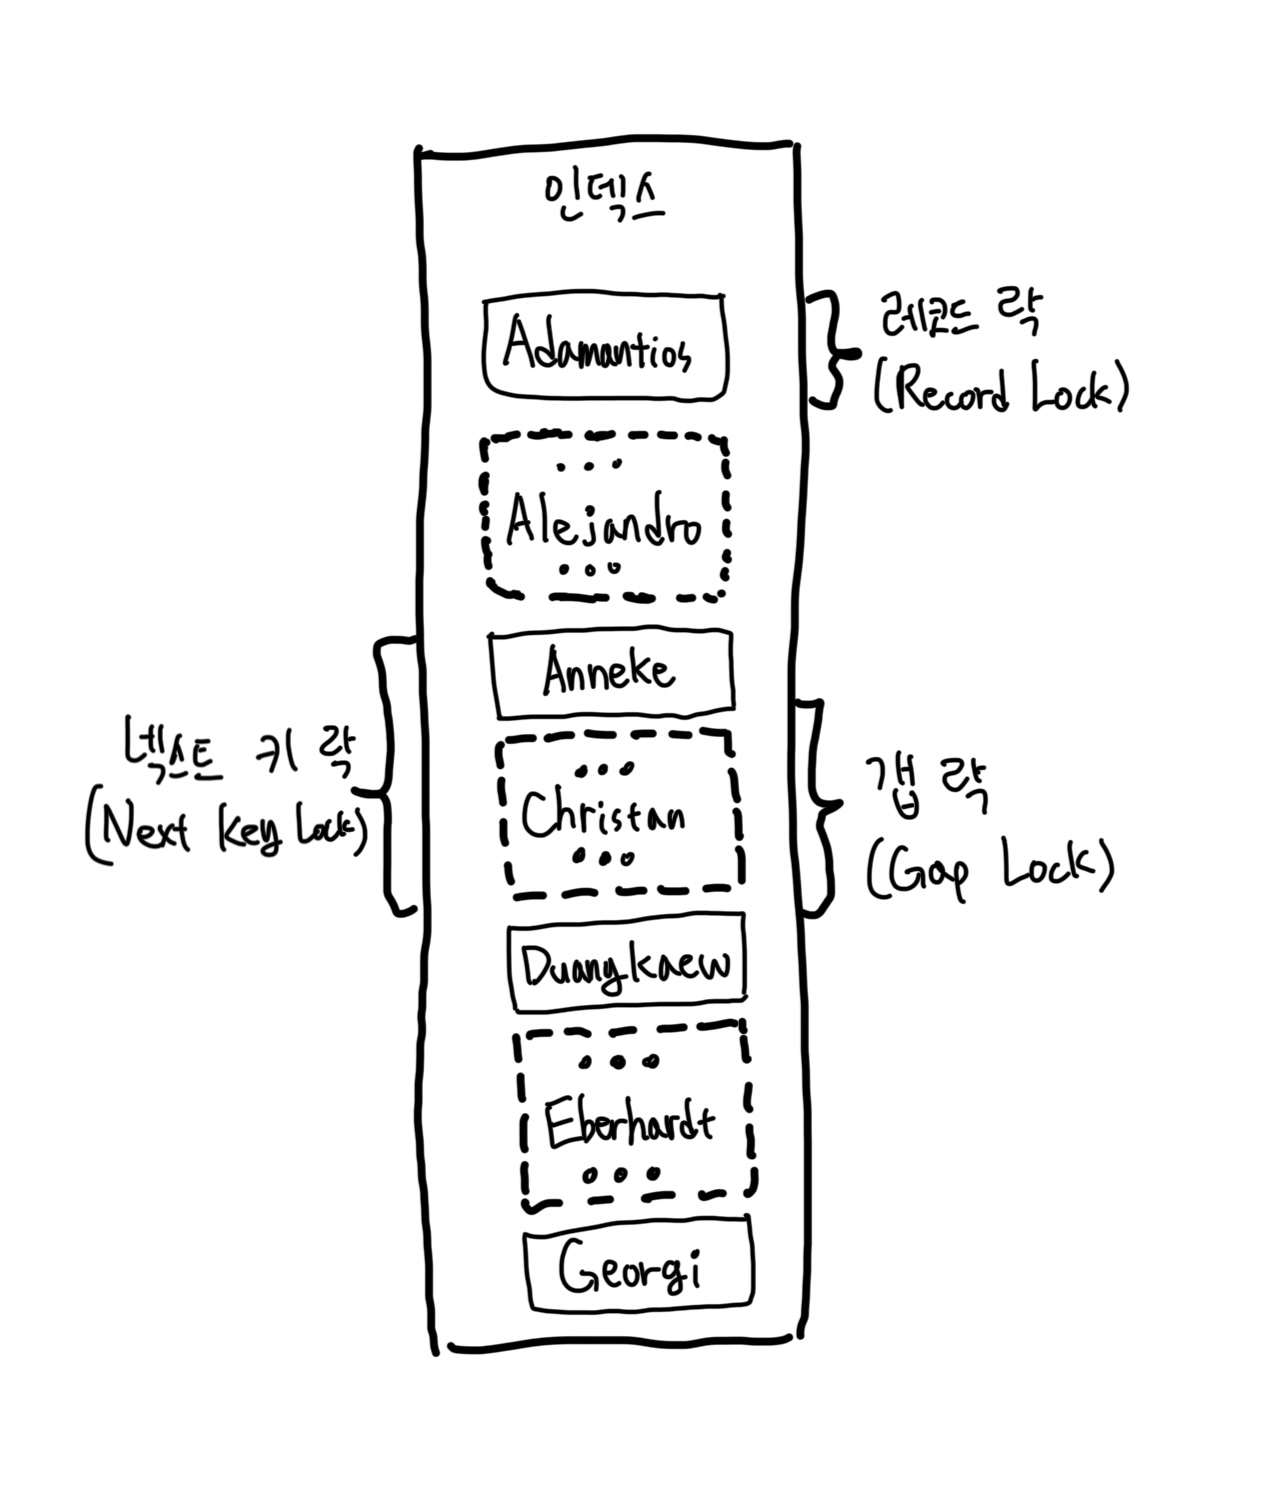 인덱스
Adamantios
레코드 락
(Record Lock)
...
Alejandro
...
Anneke
넥스트 키 락
(Next Key Lock)
...
Christan
...
갭 락
(Gap Lock)
Duangkaew
...
Eberhardt
...
Georgi